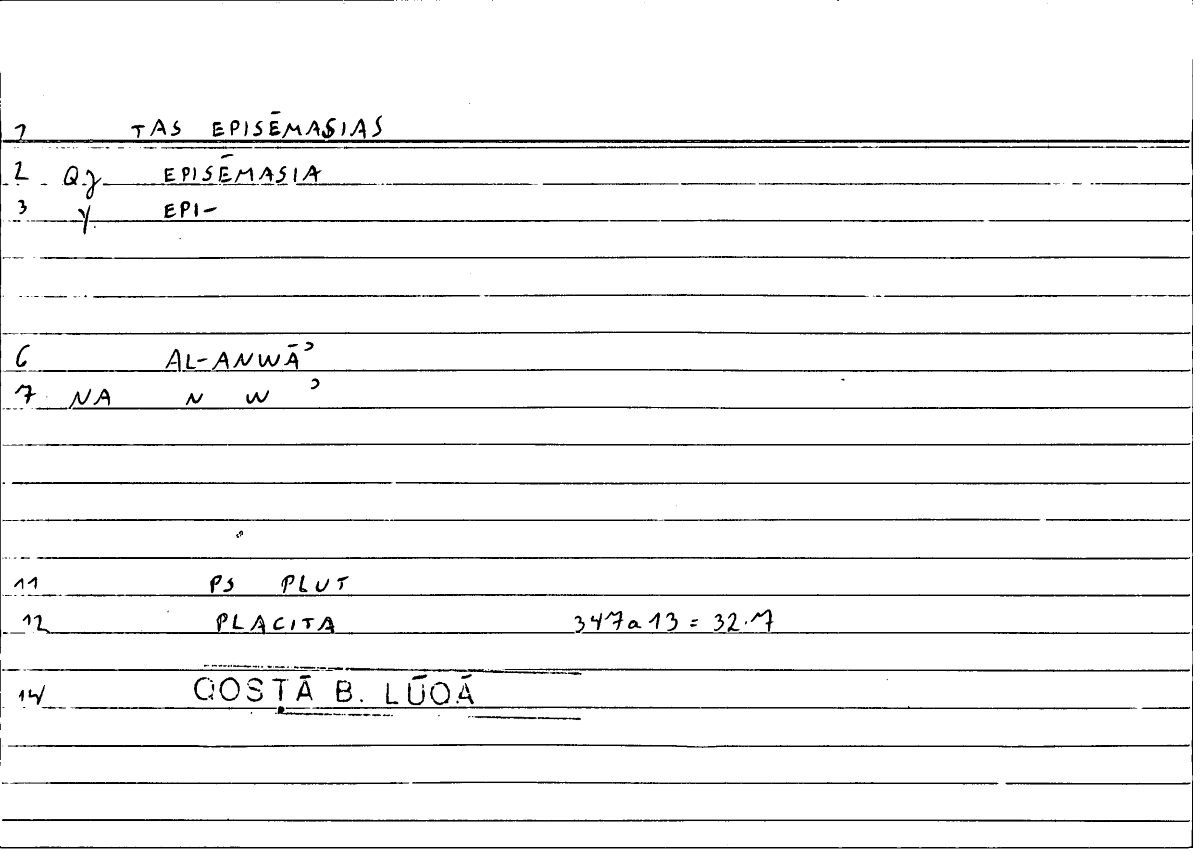 1 TAS EPISĒMASIAS
2 Qγ EPISĒMASIA
3 γ. EPI-
6 AL-ANWĀʾ
7 NA N W ʾ
11 PS PLUT
12 PLACITA 347a13 = 32.7
14 QOSṬĀ B. LŪQĀ